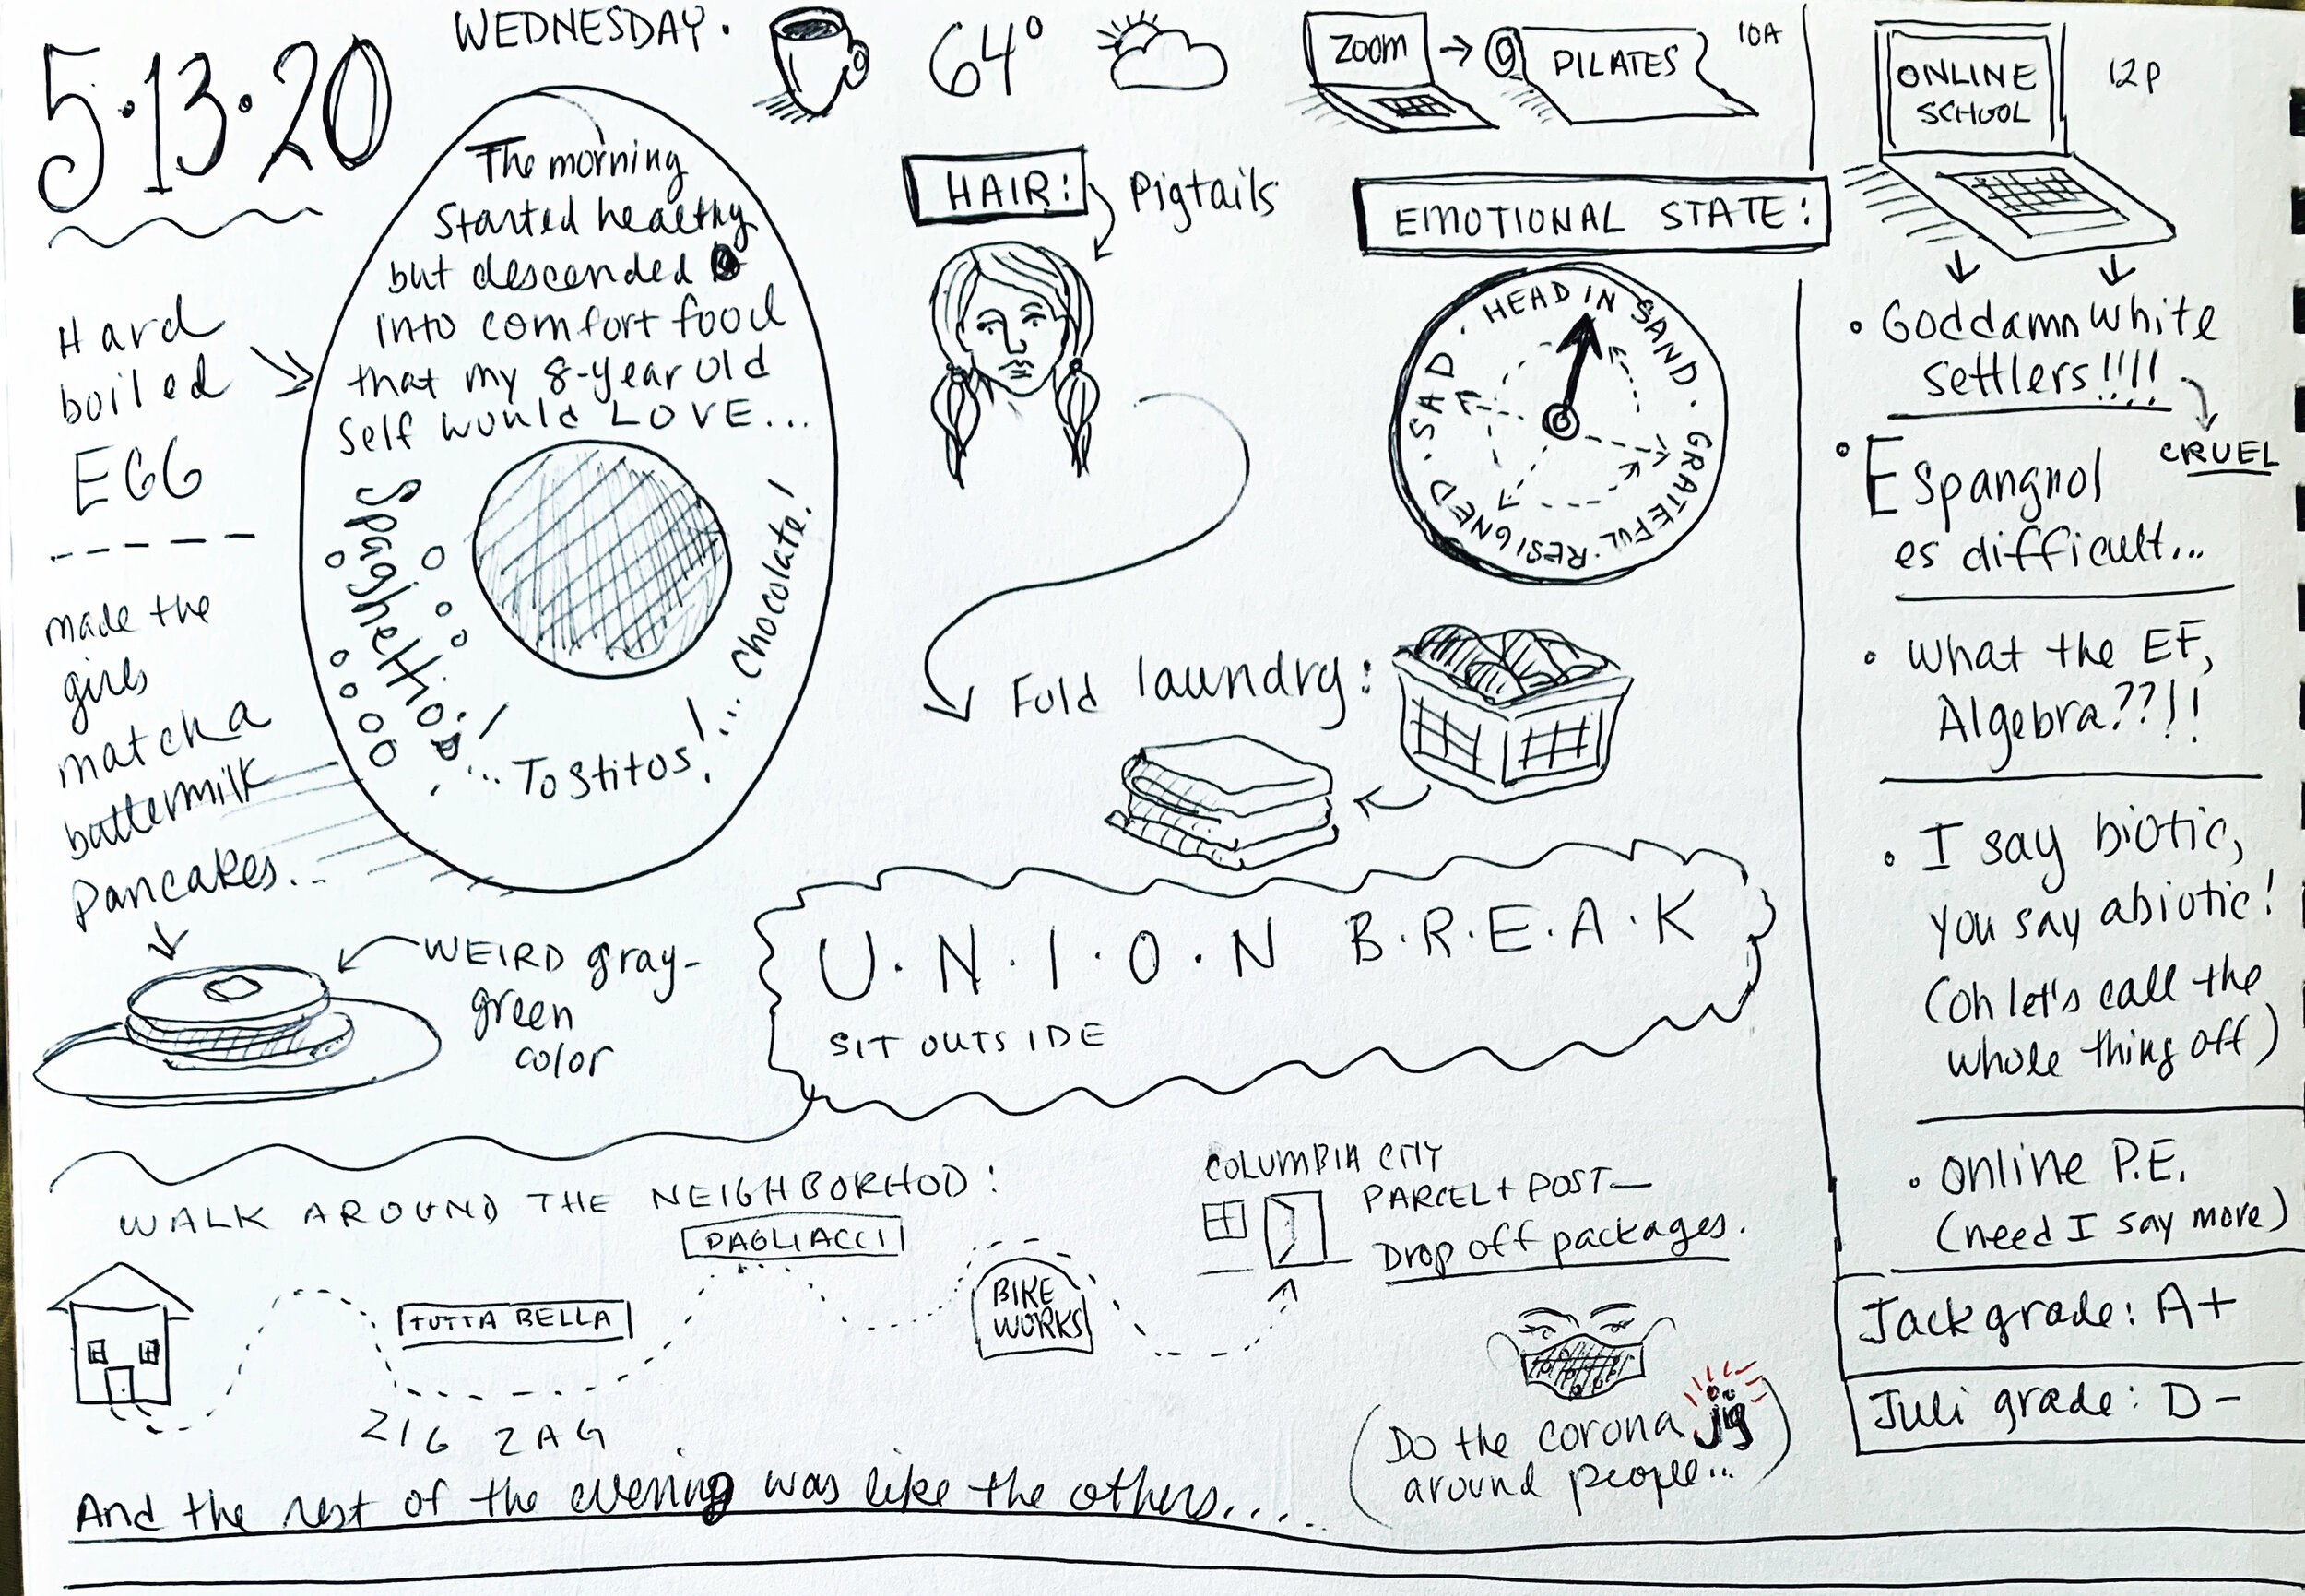 5.13.20
WEDNESDAY.
64°
ZOOM
PILATES
10A
ONLINE
SCHOOL
12P
The morning
started healthy
but descended
into comfort food
that my 8-year old
self would LOVE...
SpaghettiO's!...
Tostitos!...
Chocolate!
Hard
boiled
EGG
made the
girls
matcha
buttermilk
pancakes...
WEIRD gray-
green
color
HAIR:
Pigtails
EMOTIONAL STATE:
HEAD IN SAND · GRATEFUL · RESIGNED · SAD ·
Fold laundry:
U.N.I.O.N B.R.E.A.K
SIT OUTSIDE
• Goddamn white
settlers!!!!
CRUEL
• Espangnol
es difficult...
• What the EF,
Algebra??!!
• I say biotic,
you say abiotic!
(oh let's call the
whole thing off)
• online P.E.
(need I say more)
Jack grade: A+
Juli grade: D-
WALK AROUND THE NEIGHBORHOD:
TUTTA BELLA
PAGLIACCI
BIKE
WORKS
ZIG ZAG
COLUMBIA CITY
PARCEL + POST—
Drop off packages.
(Do the corona jig
around people...)
And the rest of the evening was like the others....